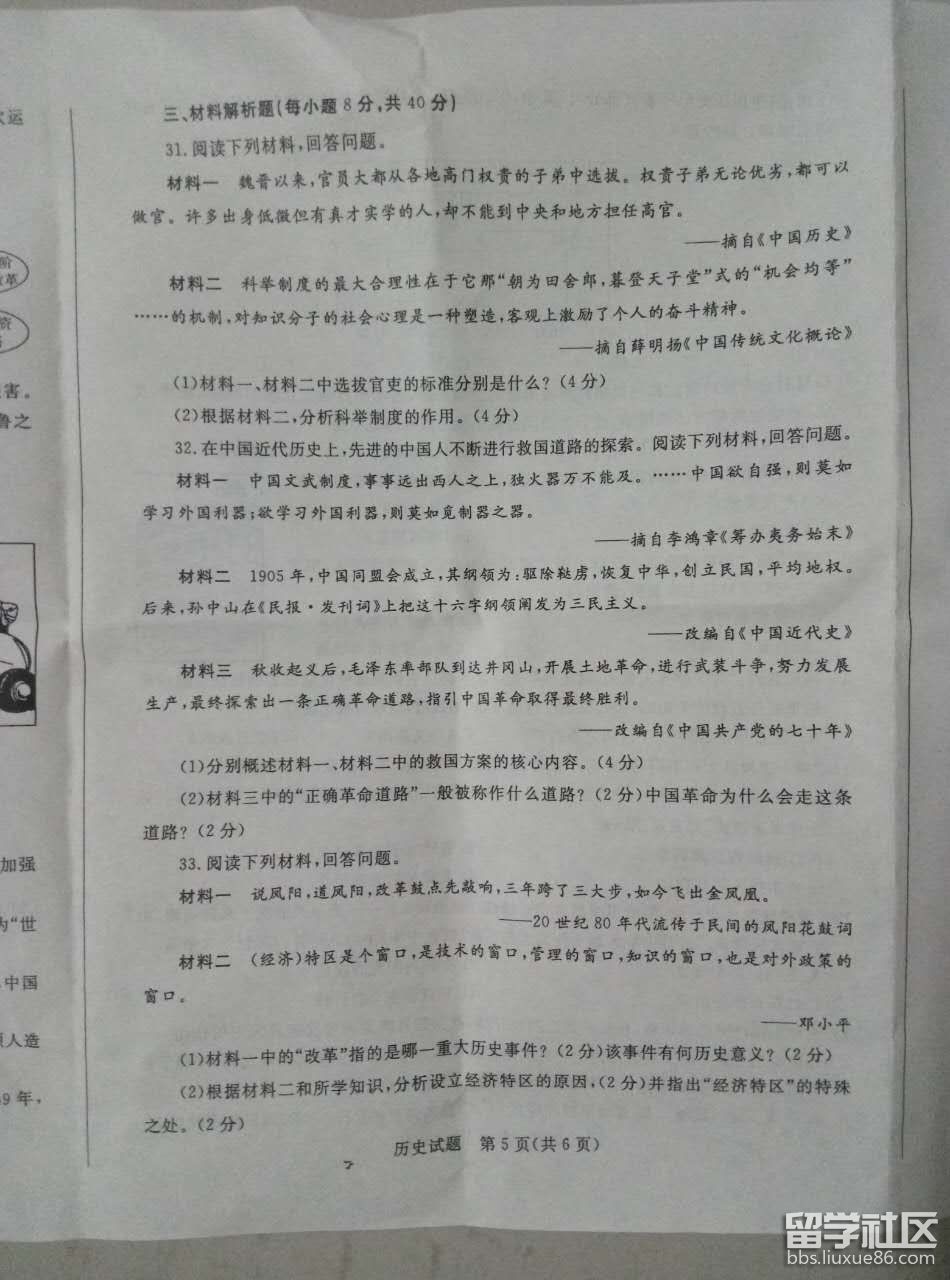 三、材料解析题(每小题8分,共40分)
31.阅读下列材料,回答问题。
材料一 魏晋以来,官员大都从各地高门权贵的子弟中选拔。权贵子弟无论优劣,都可以
做官。许多出身低微但有真才实学的人,却不能到中央和地方担任高官。
——摘自《中国历史》
材料二 科举制度的最大合理性在于它那“朝为田舍郎,暮登天子堂”式的“机会均等”
……的机制,对知识分子的社会心理是一种塑造,客观上激励了个人的奋斗精神。
——摘自薛明扬《中国传统文化概论》
(1)材料一、材料二中选拔官吏的标准分别是什么?(4分)
(2)根据材料二,分析科举制度的作用。(4分)
32.在中国近代历史上,先进的中国人不断进行救国道路的探索。阅读下列材料,回答问题。
材料一 中国文武制度,事事远出西人之上,独火器万不能及。……中国欲自强,则莫如
学习外国利器;欲学习外国利器,则莫如觅制器之器。
——摘自李鸿章《筹办夷务始末》
材料二 1905年,中国同盟会成立,其纲领为:驱除鞑虏,恢复中华,创立民国,平均地权。
后来,孙中山在《民报·发刊词》上把这十六字纲领阐发为三民主义。
——改编自《中国近代史》
材料三 秋收起义后,毛泽东率部队到达井冈山,开展土地革命,进行武装斗争,努力发展
生产,最终探索出一条正确革命道路,指引中国革命取得最终胜利。
——改编自《中国共产党的七十年》
(1)分别概述材料一、材料二中的救国方案的核心内容。(4分)
(2)材料三中的“正确革命道路”一般被称作什么道路?(2分)中国革命为什么会走这条
道路?(2分)
33.阅读下列材料,回答问题。
材料一 说凤阳,道凤阳,改革鼓点先敲响,三年跨了三大步,如今飞出金凤凰。
——20世纪80年代流传于民间的凤阳花鼓词
材料二 (经济)特区是个窗口,是技术的窗口,管理的窗口,知识的窗口,也是对外政策的
窗口。
——邓小平
(1)材料一中的“改革”指的是哪一重大历史事件?(2分)该事件有何历史意义?(2分)
(2)根据材料二和所学知识,分析设立经济特区的原因,(2分)并指出“经济特区”的特殊
之处。(2分)
历史试题 第5页(共6页)
运
阶
革
资
害。
鲁之
加强
为“世
中国
人造
9年,
留学社区
bbs.liuxue86.com